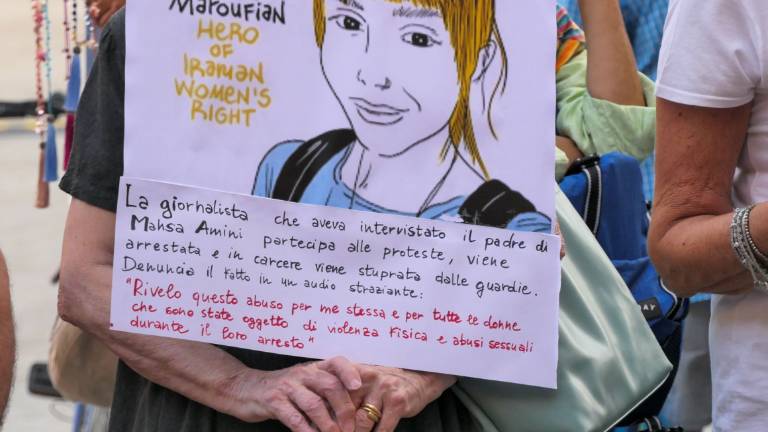 Maroufian
HERO
OF
IRANIAN
WOMEN'S
RIGHT
La giornalista che aveva intervistato il padre di
Mahsa Amini partecipa alle proteste, viene
arrestata e in carcere viene stuprata dalle guardie.
Denuncia il fatto in un audio straziante:
"Rivelo questo abuso per me stessa e per tutte le donne
che sono state oggetto di violenza fisica e abusi sessuali
durante il loro arresto"